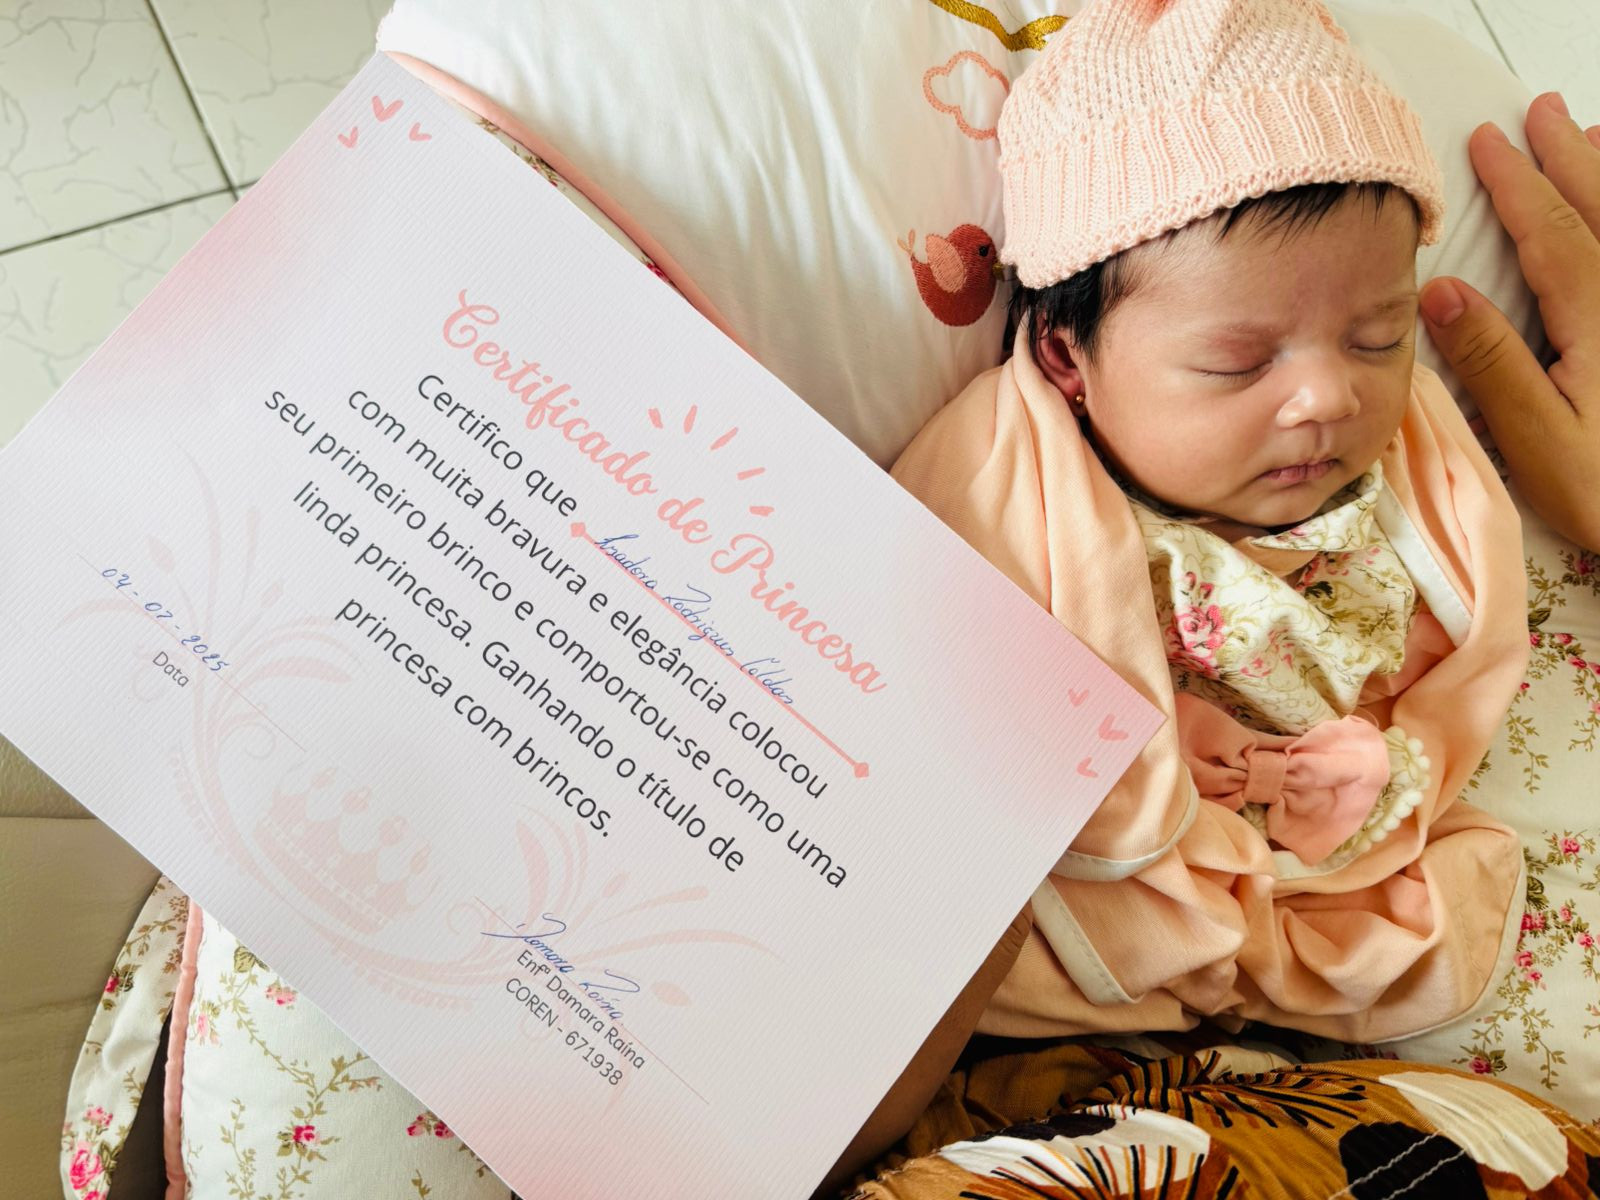 Certificado de Princesa
Certifico que Isadora Rodrigues Caldas
com muita bravura e elegância colocou
seu primeiro brinco e comportou-se como uma
linda princesa. Ganhando o título de
princesa com brincos.
04-07-2025
Data
Damara Raína
Enfª Damara Raína
COREN - 671938